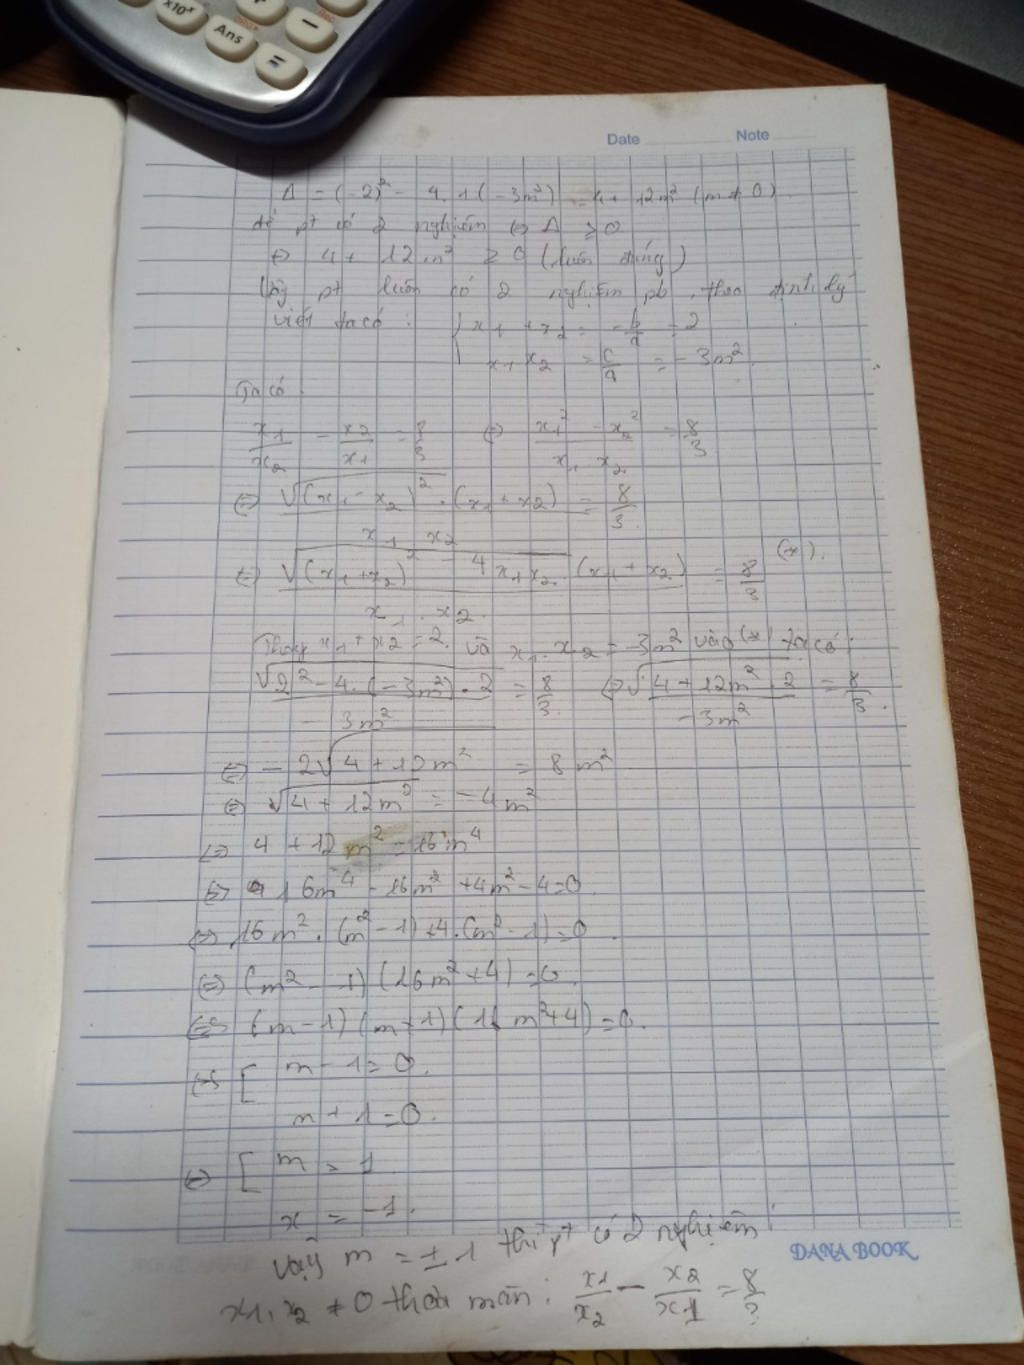 x10ˣ
Ans
−
=
Date Note
Δ = (-2)² - 4.1(-3m²) = 4 + 12m² (m ≠ 0)
để pt có 2 nghiệm ⇔ Δ ≥ 0
⇔ 4 + 12m² ≥ 0 (luôn đúng)
Vậy pt luôn có 2 nghiệm pb, theo định lý
viét ta có: { x₁ + x₂ = -b/a = 2
x₁ x₂ = c/a = -3m²
Ta có
x₁/x₂ - x₂/x₁ = 8/3 ⇔ (x₁² - x₂²)/(x₁ x₂) = 8/3
⇔ √(x₁ - x₂)² . (x₁ + x₂) / x₁ x₂ = 8/3
⇔ √((x₁ + x₂)² - 4x₁x₂) . (x₁ + x₂) / x₁ . x₂ = 8/3 (*).
Thay x₁ + x₂ = 2 và x₁ . x₂ = -3m² vào (*) ta có:
√(2² - 4.(-3m²)) . 2 / -3m² = 8/3 ⇔ √(4 + 12m²) . 2 / -3m² = 8/3.
⇔ - 2√(4 + 12m²) = 8m²
⇔ √(4 + 12m²) = -4m²
⇔ 4 + 12m² = 16m⁴
⇔ 16m⁴ - 16m² + 4m² - 4 = 0
⇔ 16m² . (m² - 1) + 4.(m² - 1) = 0.
⇔ (m² - 1)(16m² + 4) = 0
⇔ (m - 1)(m + 1)(16m² + 4) = 0.
⇔ [ m - 1 = 0.
m + 1 = 0.
⇔ [ m = 1
x = -1.
vậy m = ±1 thì pt có 2 nghiệm
x₁, x₂ ≠ 0 thỏa mãn: x₁/x₂ - x₂/x₁ = 8/3
DANA BOOK